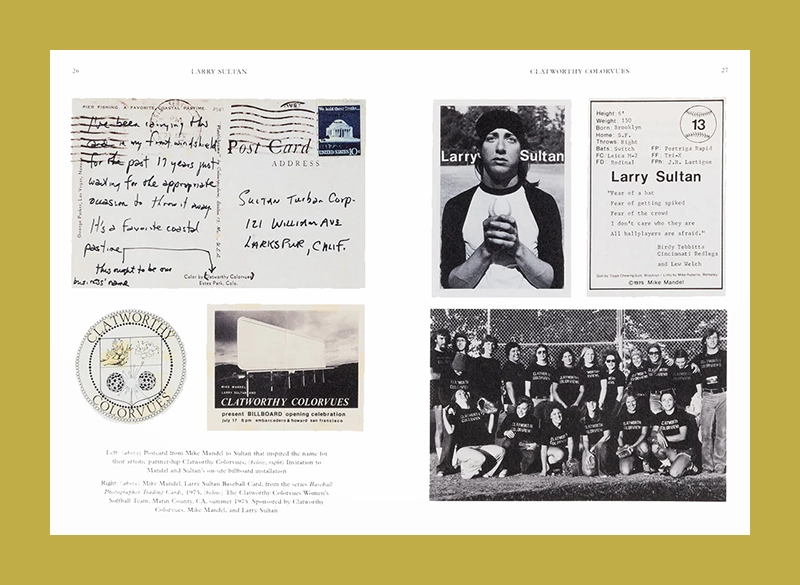 26
LARRY SULTAN
CLATWORTHY COLORVUES
27
PIER FISHING. A FAVORITE COASTAL PASTIME.
I've been carrying this
card in my front windshield
for the past 17 years just
waiting for the appropriate
occasion to throw it away.
It's a favorite coastal
pastime,
this ought to be our
business' name
Post Card
ADDRESS
UNITED STATES 10c
SULTAN Turban Corp.
121 WILLIAM AVE
LARKSPUR, CALIF.
Color by Clatworthy Colorvues
Estes Park, Colo.
CLATWORTHY
COLORVUES
MIKE MANDEL
LARRY SULTAN
CLATWORTHY COLORVUES
present BILLBOARD opening celebration
july 17 8pm embarcadero & howard san francisco
Left: (above) Postcard from Mike Mandel to Sultan that inspired the name for
their artistic partnership Clatworthy Colorvues; (below, right) Invitation to
Mandel and Sultan's on-site billboard installation
Right: (above) Mike Mandel, Larry Sultan Baseball Card, from the series Baseball
Photographer Trading Cards, 1975; (below) The Clatworthy Colorvues Women's
Softball Team, Marin County, CA, summer 1975. Sponsored by Clatworthy
Colorvues, Mike Mandel, and Larry Sultan
Larry Sultan
Height: 6"
Weight: 150
Born: Brooklyn
Home: S.F.
Throws: Right
Bats: Switch
FC: Leica M-2
FD: Rodinal
FP: Portriga Rapid
FF: Tri-X
FPh: J.H. Lartigue
13
Larry Sultan
"Fear of a bat
Fear of getting spiked
Fear of the crowd
I don't care who they are
All ballplayers are afraid."
Birdy Tebbitts
Cincinnati Redlegs
and Lew Welch
©1975 Mike Mandel
CLATWORTHY
COLORVUES